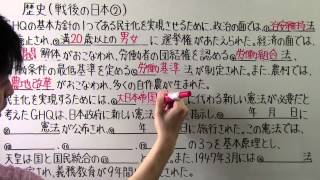 歴史(戦後の日本②)
GHQの基本方針の1つである民主化を実現させるために、政治の面では、◎治安維持法
廃止され、◎満20歳以上の男女に選挙権があたえられた。経済の面では、◎
財閥解体がおこなわれ、労働者の団結を認める◎労働組合法
労働条件の最低基準を定める◎労働基準法が制定された。また、農村では、
農地改革がおこなわれ、多くの自作農が生まれた。
民主化を実現するためには、◎大日本帝国に代わる新しい憲法が必要だと
考えたGHQは、日本政府に新しい憲法 年 月 日に
憲法が公布され、 年 月 日に施行された。この憲法では、
の3つを基本原理とし、
天皇は国と国民統合の た。また、1947年3月には
制定され、義務教育が9年間